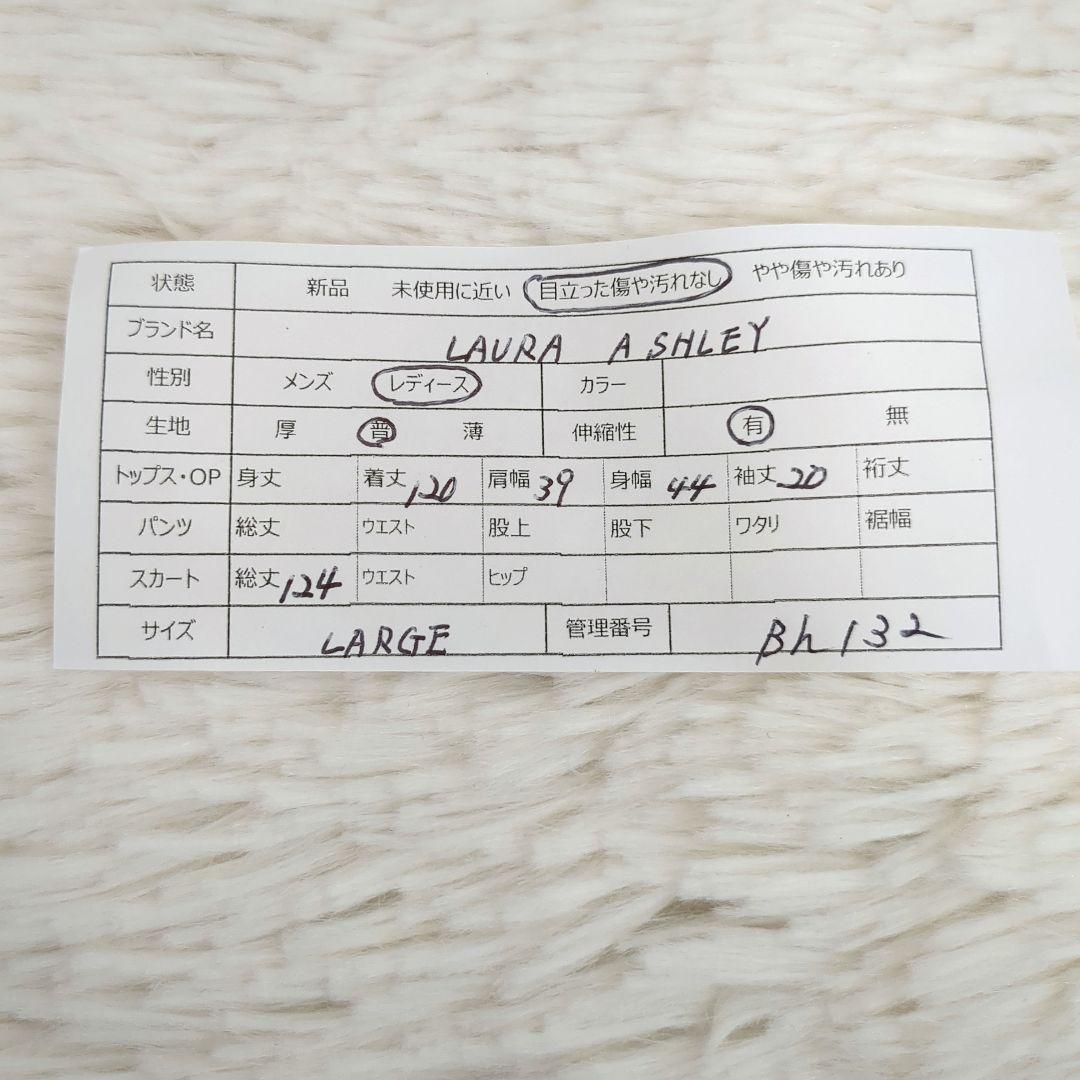 状態 新品 未使用に近い 目立った傷や汚れなし やや傷や汚れあり
ブランド名 LAURA ASHLEY
性別 メンズ レディース カラー
生地 厚 普 薄 伸縮性 有 無
トップス・OP 身丈 着丈 120 肩幅 39 身幅 44 袖丈 20 裄丈
パンツ 総丈 ウエスト 股上 股下 ワタリ 裾幅
スカート 総丈 124 ウエスト ヒップ
サイズ LARGE 管理番号 Bh132